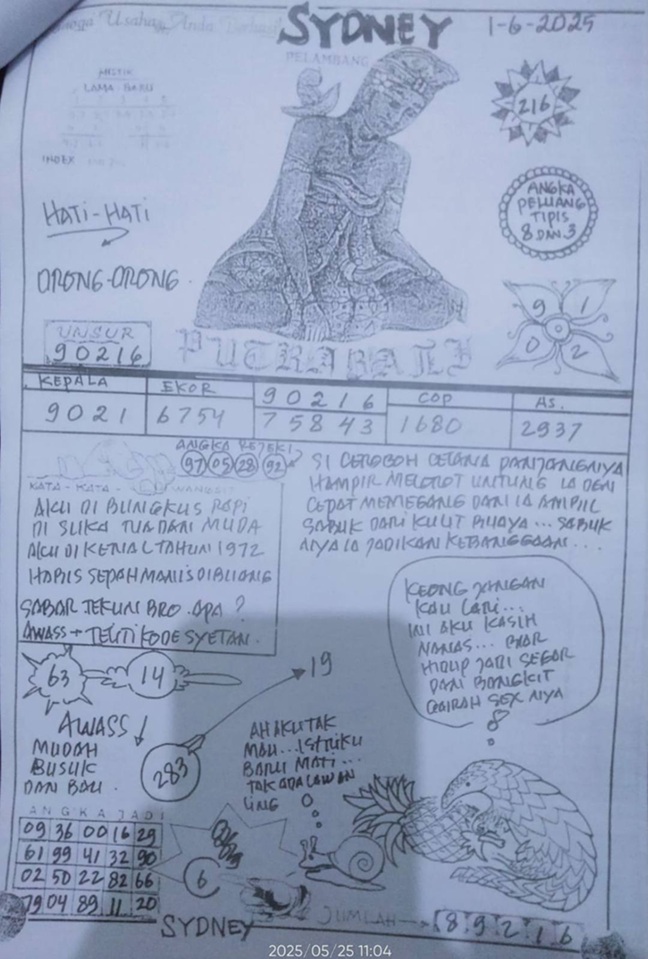 Usaha Anda Berhasil
SYDNEY
1-6-2025
PELAMBANG
MISTIK
LAMA BARU
INDEX
216
ANGKA
PELUANG
TIPIS
8 DAN 3
HATI-HATI
ORONG-ORONG
UNSUR
90216
PUTRA BALI
9 1
0 2
KEPALA
EKOR
90216
COP
AS.
9021
6754
75843
1680
2937
ANGKA REJEKI
97 05 28 92
KATA-KATA WANGSIT
AKU DI BUNGKUS RAPI
DI SUKA TUA DAN MUDA
AKU DI KENAL TAHUN 1972
HABIS SEPAH MANIS DIBUANG
SABAR TEKUN BRO. APA ?
AWASS + TELITI KODE SYETAN.
SI CEROBOH CELANA PANJANGNYA
HAMPIR MELOROT UNTUNG IA DEN
CEPAT MEMEGANG DAN IA AMPIL
SABUK DARI KULIT BUAYA ... SABUK
NYA IA JADIKAN KEBANGGAAN ...
KEONG JANGAN
KAU LARI...
INI AKU KASIH
NANAS... BIAR
HIDUP JADI SEGAR
DAN BANGKIT
GAIRAH SEX NYA
63
14
19
AWASS !
MUDAH
BUSUK
DAN BAU.
283
AH AKU TAK
MAU... ISTRIKU
BARU MATI...
TAK ADA LAWAN
LING
ANGKA JADI
09 36 00 16 29
61 99 41 32 90
02 50 22 82 66
79 04 89 11 20
6
SYDNEY
JUMLAH
89216
2025/05/25 11:04